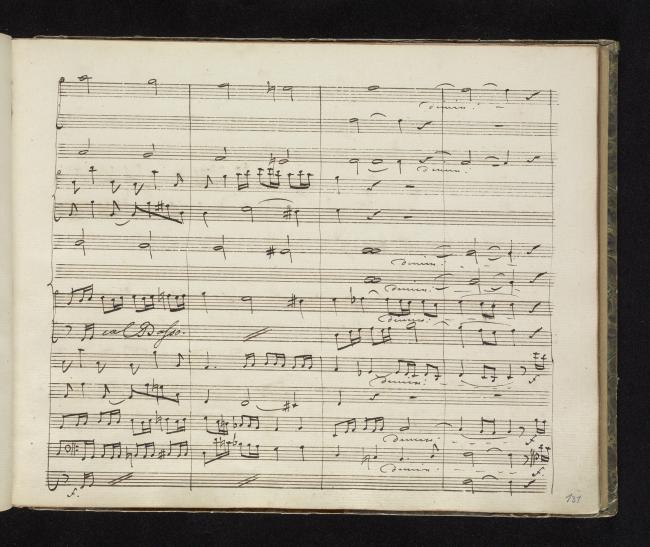 dimin:
dimin:
dimin:
dimin:
dimin:
col Basso.
dimin:
f.
dimin:
f.
dimin:
f.
f.
131